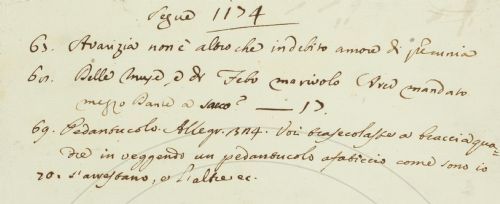 Segue 1174
63. Avarizia non è altro che indebito amore di pecunia
60. Belle Muse, e di Febo mandato
mezzo Dante a sacco — 17.
69. Pedantucolo. Allegr. 174. Voi trasecolaste a braccia qua-
dre in veggendo un pedantucolo afaticcio come sono io
70. s'arrestano, e l'altre ec.